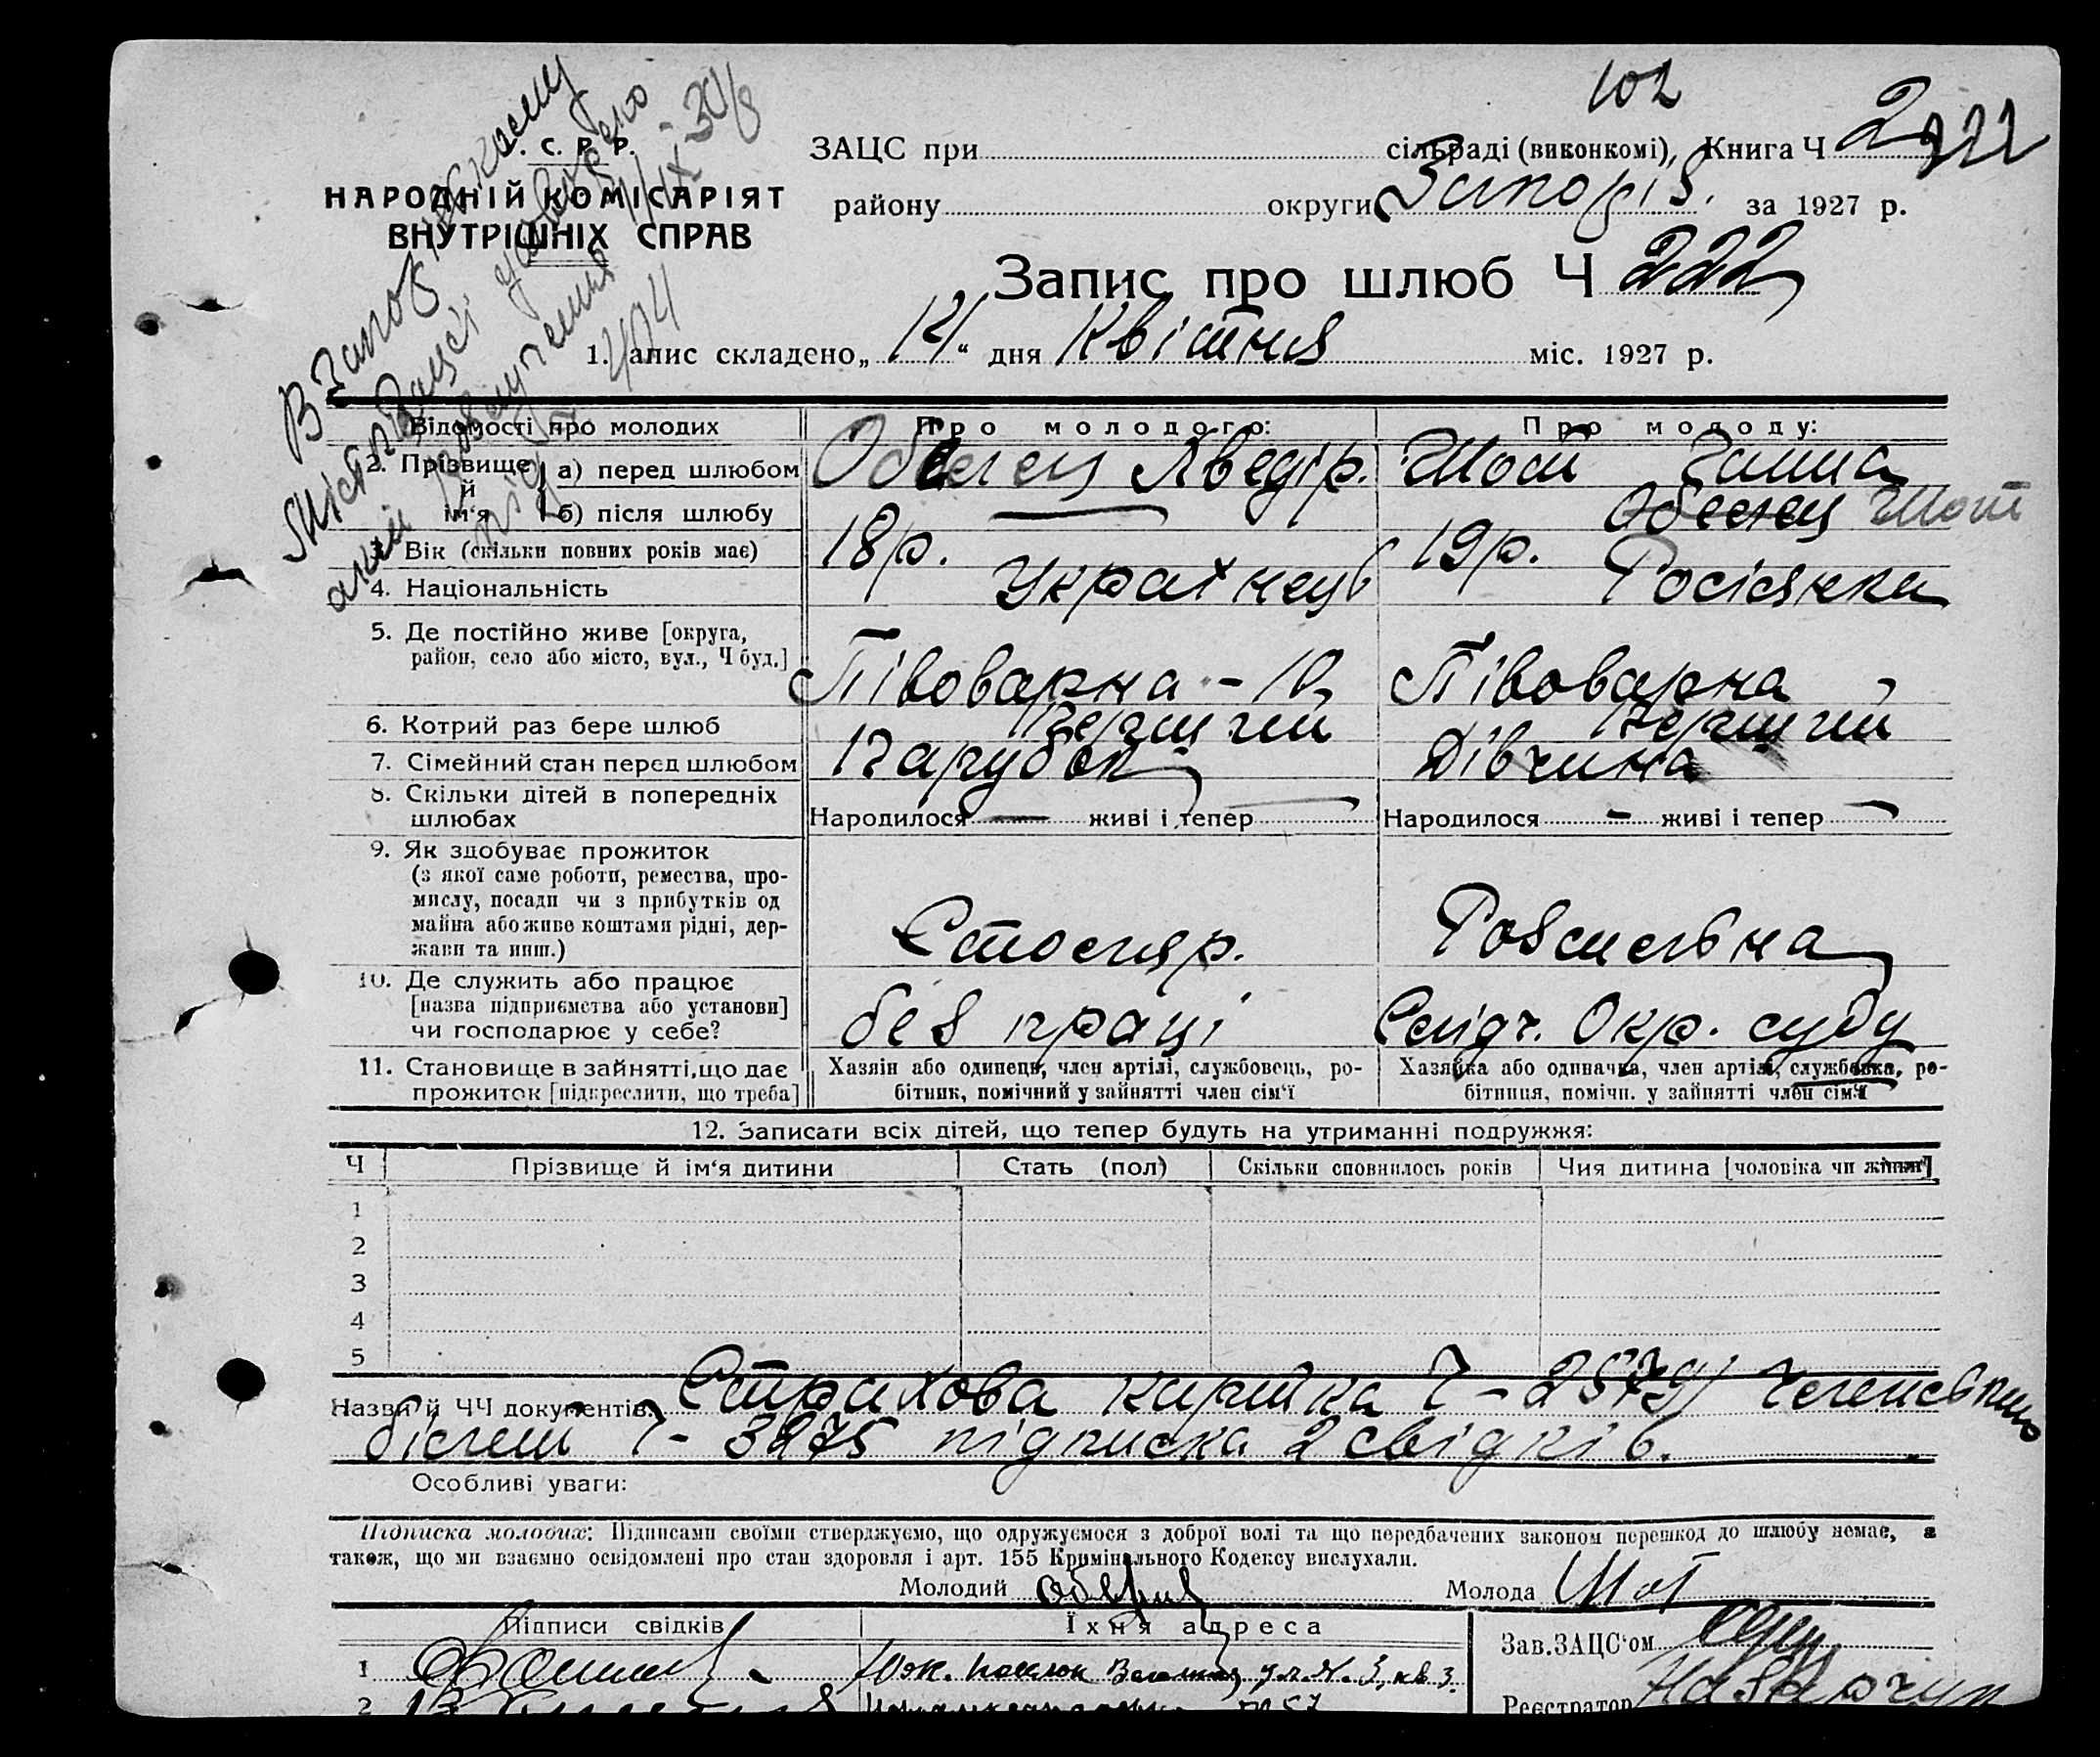 102
С. Р. Р.
НАРОДНІЙ КОМІСАРІЯТ
ВНУТРІШНІХ СПРАВ
ЗАЦС при сільраді (виконкомі), Книга Ч 2 222
району округи Запоріз. за 1927 р.
Запис про шлюб Ч 222
1. апис складено „14“ дня Квітня міс. 1927 р.
Відомості про молодих Про молодого: Про молоду:
2. Прізвище й ім‘я а) перед шлюбом Обелец Хведір. Шот Ганна
б) після шлюбу Обелец Шот
3. Вік (скільки повних років має) 18 р. 19 р.
4. Національність Українець Росіянка
5. Де постійно живе [округа, район, село або місто, вул., Ч буд.] Півоварна - 10 Півоварна
6. Котрий раз бере шлюб Перший Перший
7. Сімейний стан перед шлюбом Парубок Дівчина
8. Скільки дітей в попередніх шлюбах Народилося — живі і тепер — Народилося — живі і тепер —
9. Як здобуває прожиток
(з якої саме роботи, ремества, про-
мислу, посади чи з прибутків од
майна або живе коштами рідні, дер-
жави та инш.) Столяр.
10. Де служить або працює
[назва підприємства або установи]
чи господарює у себе? без праці Слідч. Окр. суду
11. Становище в зайнятті, що дає прожиток [підкреслити, що треба]
Хазяїн або одинець, член артілі, службовець, ро-
бітник, помічний у зайнятті член сім‘ї
Хазяйка або одиначка, член артілі, службовка, ро-
бітниця, помічн. у зайнятті член сім‘ї
12. Записати всіх дітей, що тепер будуть на утриманні подружжя:
Ч Прізвище й ім‘я дитини Стать (пол) Скільки сповнилось років Чия дитина [чоловіка чи жінки]
1
2
3
4
5
Назви й ЧЧ документів: Страхова картка Ч - 2579
білет Ч - 3275 підписка 2 свідків.
Особливі уваги:
Підписка молодих: Підписами своїми стверджуємо, що одружуємося з доброї волі та що передбачених законом перешкод до шлюбу немає, а
також, що ми взаємно освідомлені про стан здоровля і арт. 155 Кримінального Кодексу вислухали.
Молодий Молода Шот
Підписи свідків Їхня адреса
Зав. ЗАЦС‘ом
1
2
Реєстратор